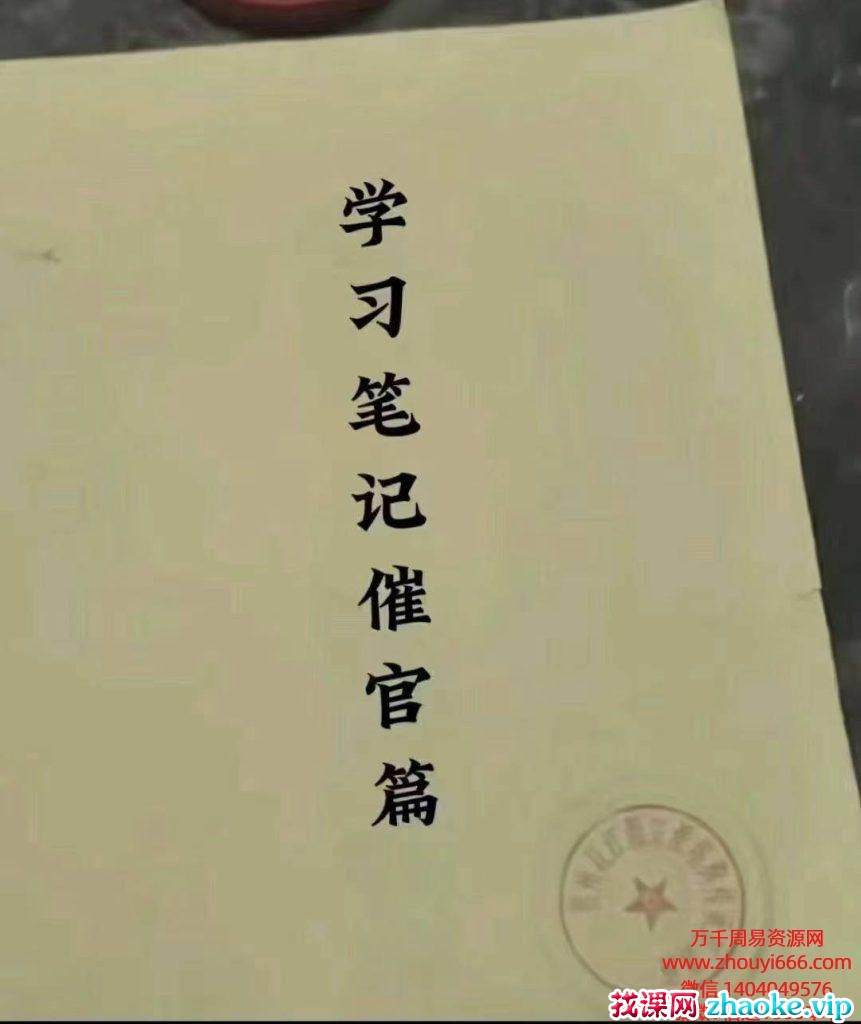 学习笔记催官篇
万千周易资源网
www.zhouyi666.com
微信 1404049576
找课网zhaoke.vip